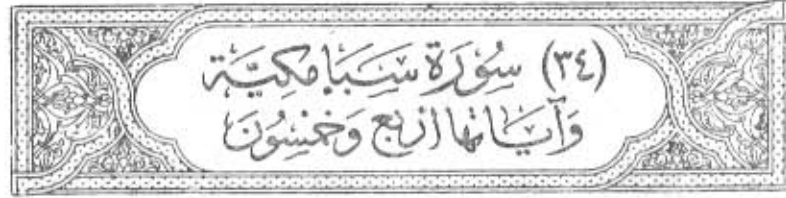 (٣٤) سُورَة سَبَإ مَكيَّة
وَآيَاتهَا أَرْبَع وَخَمْسُونَ